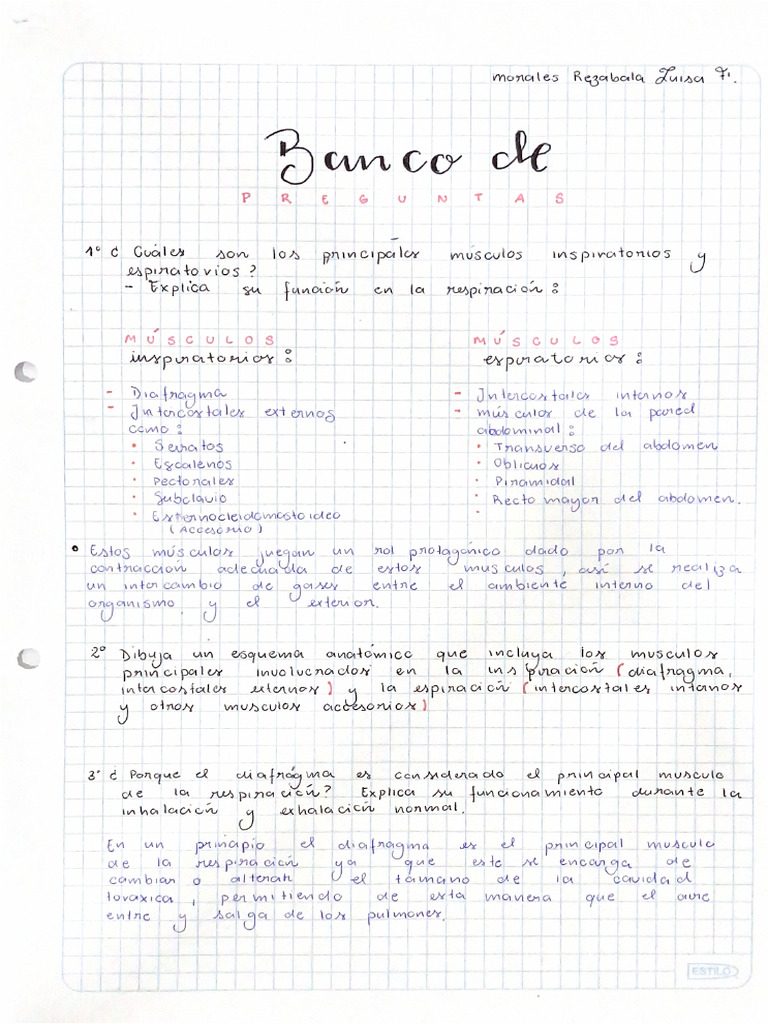 Morales Rezabala Luisa F.
Banco de
PREGUNTAS
1° ¿ Cuáles son los principales músculos inspiratorios y
espiratorios?
- Explica su función en la respiración:
MÚSCULOS
inspiratorios:
- Diafragma
- Intercostales externos
como:
• Serratos
• Escalenos
• Pectorales
• Subclavio
• Esternocleidomastoideo
(Accesorio)
MÚSCULOS
espiratorios:
- Intercostales internos
- músculos de la pared
abdominal:
• Transverso del abdomen
• Oblicuos
• Piramidal
• Recto mayor del abdomen.
• Estos músculos juegan un rol protagónico dado por la
contracción adecuada de estos musculos, así se realiza
un intercambio de gases entre el ambiente interno del
organismo y el exterior.
2° Dibuja un esquema anatómico que incluya los musculos
principales involucrados en la inspiración (diafragma,
intercostales externos) y la espiración (intercostales internos
y otros musculos accesorios)
3° ¿ Porque el diafrágma es considerado el principal musculo
de la respiración? Explica su funcionamiento durante la
inhalación y exhalación normal.
En un principio el diafragma es el principal musculo
de la respiración ya que este se encarga de
cambiar o alterar el tamaño de la cavidad
toraxica, permitiendo de esta manera que el aire
entre y salga de los pulmones.
ESTILO